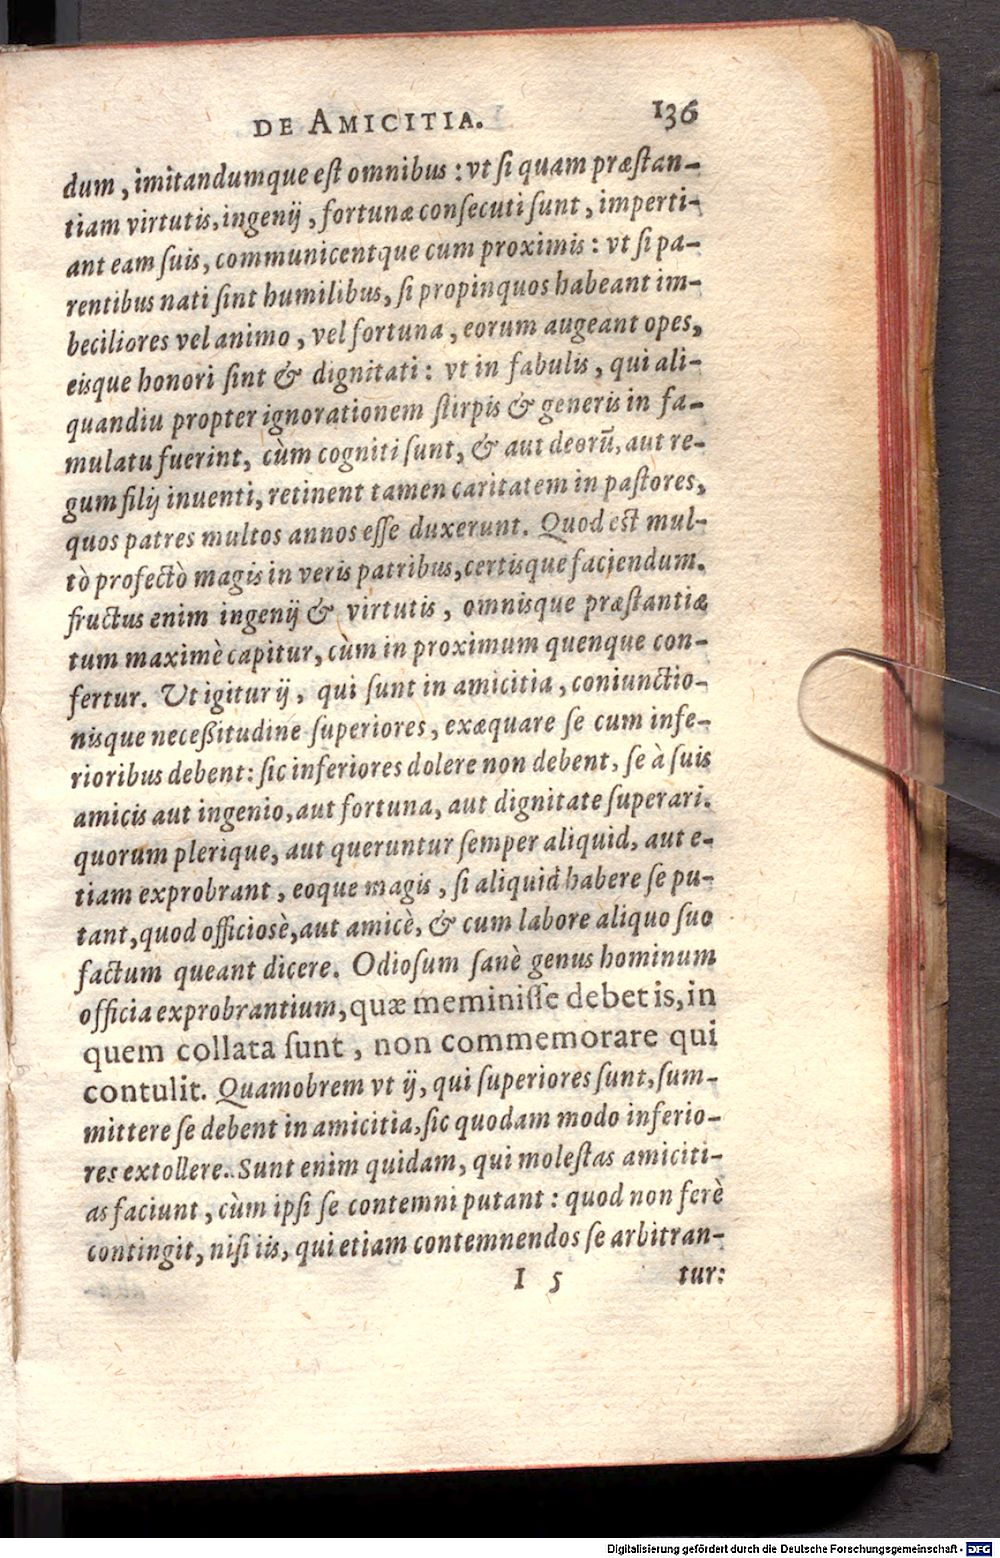 DE AMICITIA. 136
dum, imitandumque eſt omnibus: vt ſi quam præſtan-
tiam virtutis, ingenij, fortunæ conſecuti ſunt, imperti-
ant eam ſuis, communicentque cum proximis: vt ſi pa-
rentibus nati ſint humilibus, ſi propinquos habeant im-
beciliores vel animo, vel fortuna, eorum augeant opes,
eisque honori ſint & dignitati: vt in fabulis, qui ali-
quandiu propter ignorationem ſtirpis & generis in fa-
mulatu fuerint, cùm cogniti ſunt, & aut deorū, aut re-
gum filij inuenti, retinent tamen caritatem in paſtores,
quos patres multos annos eſſe duxerunt. Quod eſt mul-
tò profectò magis in veris patribus, certisque faciendum.
fructus enim ingenij & virtutis, omnisque præſtantiæ
tum maximè capitur, cùm in proximum quenque con-
fertur. Vt igitur ij, qui ſunt in amicitia, coniunctio-
nisque neceßitudine ſuperiores, exæquare ſe cum infe-
rioribus debent: ſic inferiores dolere non debent, ſe à ſuis
amicis aut ingenio, aut fortuna, aut dignitate ſuperari.
quorum plerique, aut queruntur ſemper aliquid, aut e-
tiam exprobrant, eoque magis, ſi aliquid habere ſe pu-
tant, quod officiosè, aut amicè, & cum labore aliquo ſuo
factum queant dicere. Odioſum ſanè genus hominum
officia exprobrantium, quæ meminiſſe debet is, in
quem collata ſunt, non commemorare qui
contulit. Quamobrem vt ij, qui ſuperiores ſunt, ſum-
mittere ſe debent in amicitia, ſic quodam modo inferio-
res extollere. Sunt enim quidam, qui moleſtas amiciti-
as faciunt, cùm ipſi ſe contemni putant: quod non ferè
contingit, niſi iis, qui etiam contemnendos ſe arbitran-
I 5 tur:
Digitalisierung gefördert durch die Deutsche Forschungsgemeinschaft - DFG